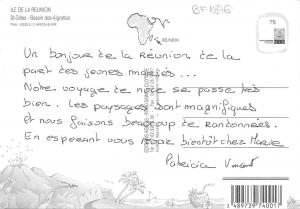 ILE DE LA REUNION
St-Gilles - Bassin des Aigrettes
BF 1896
76
REUNION
Un bonjour de la Réunion de la
part des jeunes mariés...
Notre voyage de noce se passe très
bien. Les paysages sont magnifiques
et nous faisons beaucoup de randonnées.
En espérant vous revoir bientôt chez
Patricia Vincent
3 489739 740017